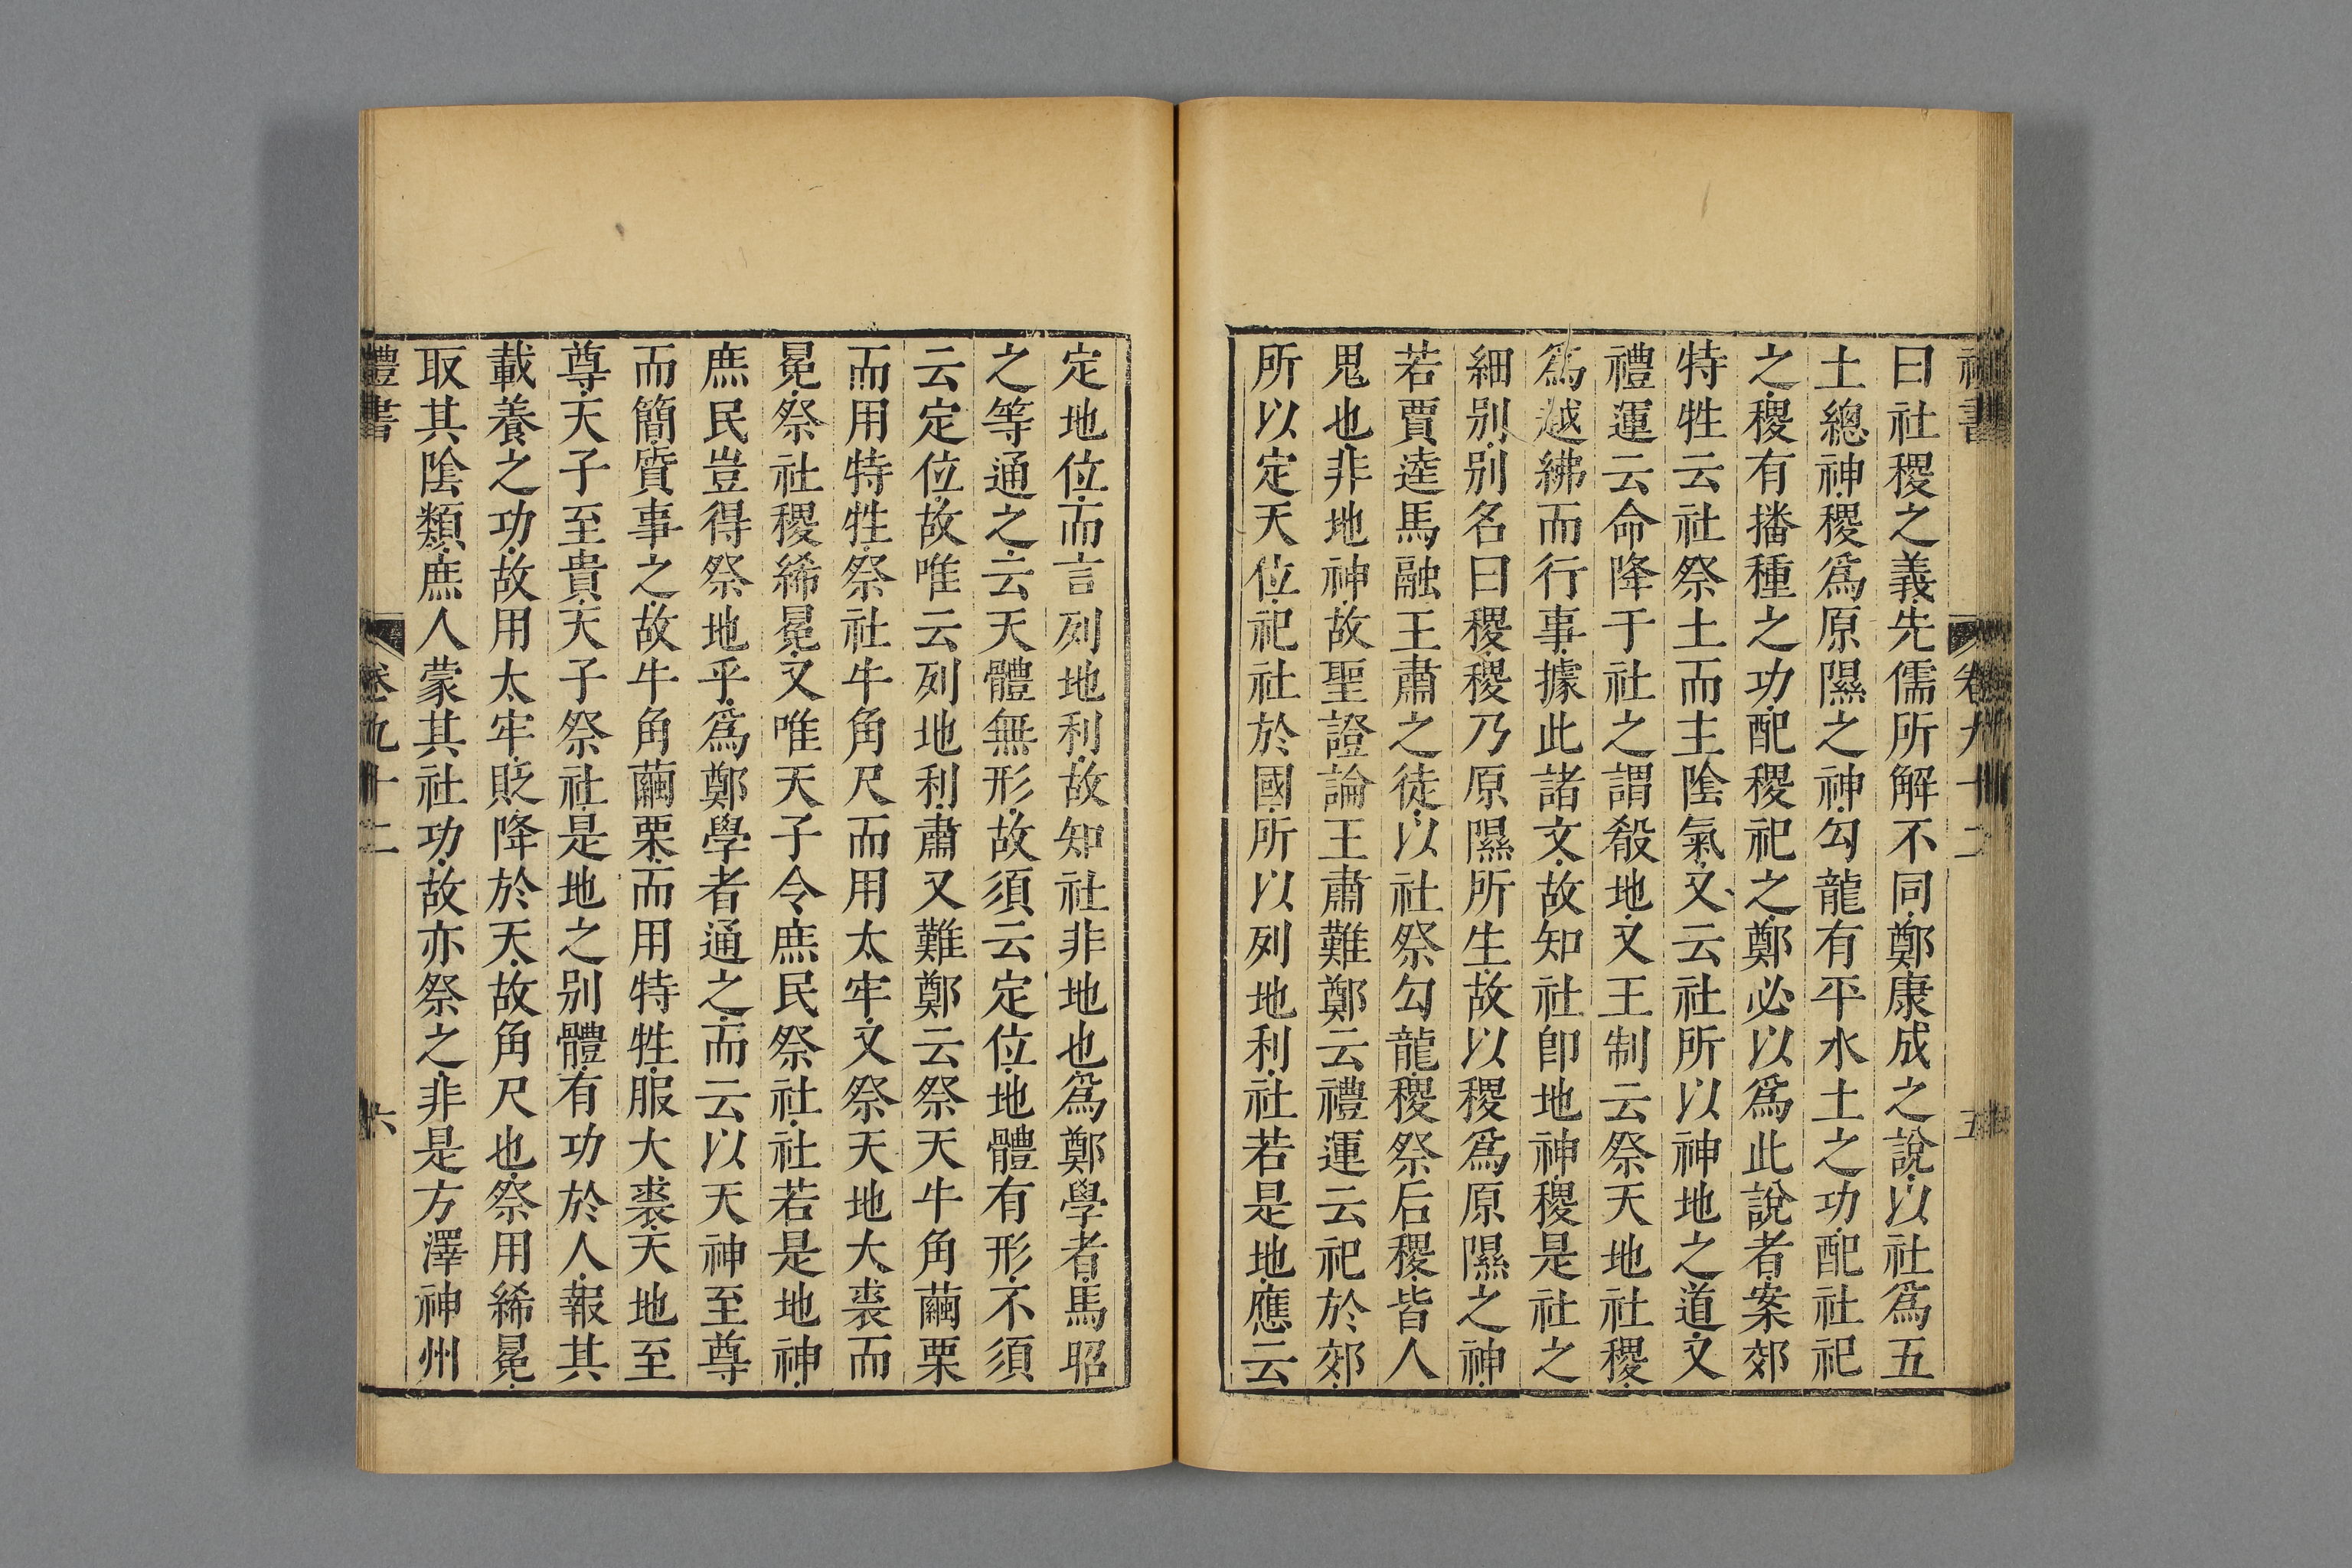 禮書 卷九十二 五
曰社稷之義先儒所解不同鄭康成之說以社爲五
土總神稷爲原隰之神勾龍有平水土之功配社祀
之稷有播種之功配稷祀之鄭必以爲此說者案郊
特牲云社祭土而主陰氣又云社所以神地之道又
禮運云命降于社之謂殽地又王制云祭天地社稷
爲越紼而行事據此諸文故知社卽地神稷是社之
細别别名曰稷稷乃原隰所生故以稷爲原隰之神
若賈逵馬融王肅之徒以社祭勾龍稷祭后稷皆人
鬼也非地神故聖證論王肅難鄭云禮運云祀於郊
所以定天位祀社於國所以列地利社若是地應云
定地位而言列地利故知社非地也爲鄭學者馬昭
之等通之云天體無形故須云定位地體有形不須
云定位故唯云列地利肅又難鄭云祭天牛角繭栗
而用特牲祭社牛角尺而用太牢又祭天地大裘而
冕祭社稷絺冕又唯天子令庶民祭社社若是地神
庶民豈得祭地乎爲鄭學者通之而云以天神至尊
而簡質事之故牛角繭栗而用特牲服大裘天地至
尊天子至貴天子祭社是地之别體有功於人報其
載養之功故用太牢貶降於天故角尺也祭用絺冕
取其陰類庶人蒙其社功故亦祭之非是方澤神州
禮書 卷九十二 六